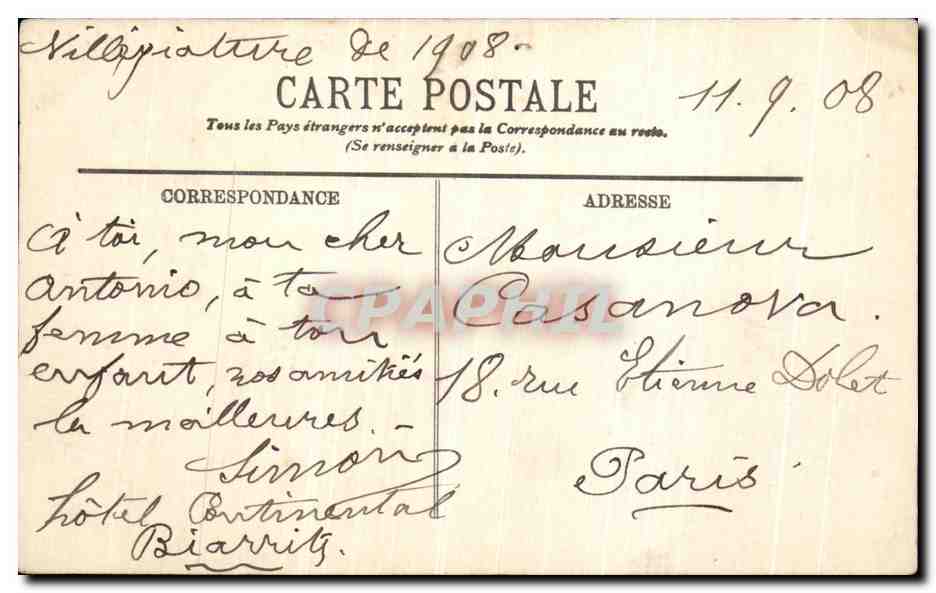 Villégiature de 1908-
CARTE POSTALE
11. 9. 08
Tous les Pays étrangers n'acceptent pas la Correspondance au recto.
(Se renseigner à la Poste).
CORRESPONDANCE
à toi, mon cher
Antonio, à ta
femme à ton
enfant, nos amitiés
les meilleures. -
Simon
hôtel Continental
Biarritz.
ADRESSE
Monsieur
Casanova.
18. rue Etienne Dolet
Paris
CPAPHIL